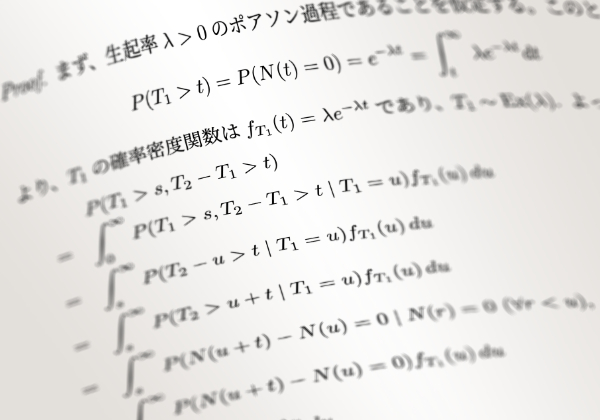 Proof. まず、生起率 λ > 0 のポアソン過程であることを仮定する。このと
P(T₁ > t) = P(N(t) = 0) = e^{−λt} = ∫_t^∞ λe^{−λt} dt
より、T₁ の確率密度関数は f_{T₁}(t) = λe^{−λt} であり、T₁ ~ Ex(λ). よっ
P(T₁ > s, T₂ − T₁ > t)
= ∫_0^∞ P(T₁ > s, T₂ − T₁ > t | T₁ = u) f_{T₁}(u) du
= ∫^∞ P(T₂ − u > t | T₁ = u) f_{T₁}(u) du
= ∫^∞ P(T₂ > u + t | T₁ = u) f_{T₁}(u) du
= ∫^∞ P(N(u + t) − N(u) = 0 | N(r) = 0 (∀r < u),
∫^∞ P(N(u + t) − N(u) = 0) f_{T₁}(u) du